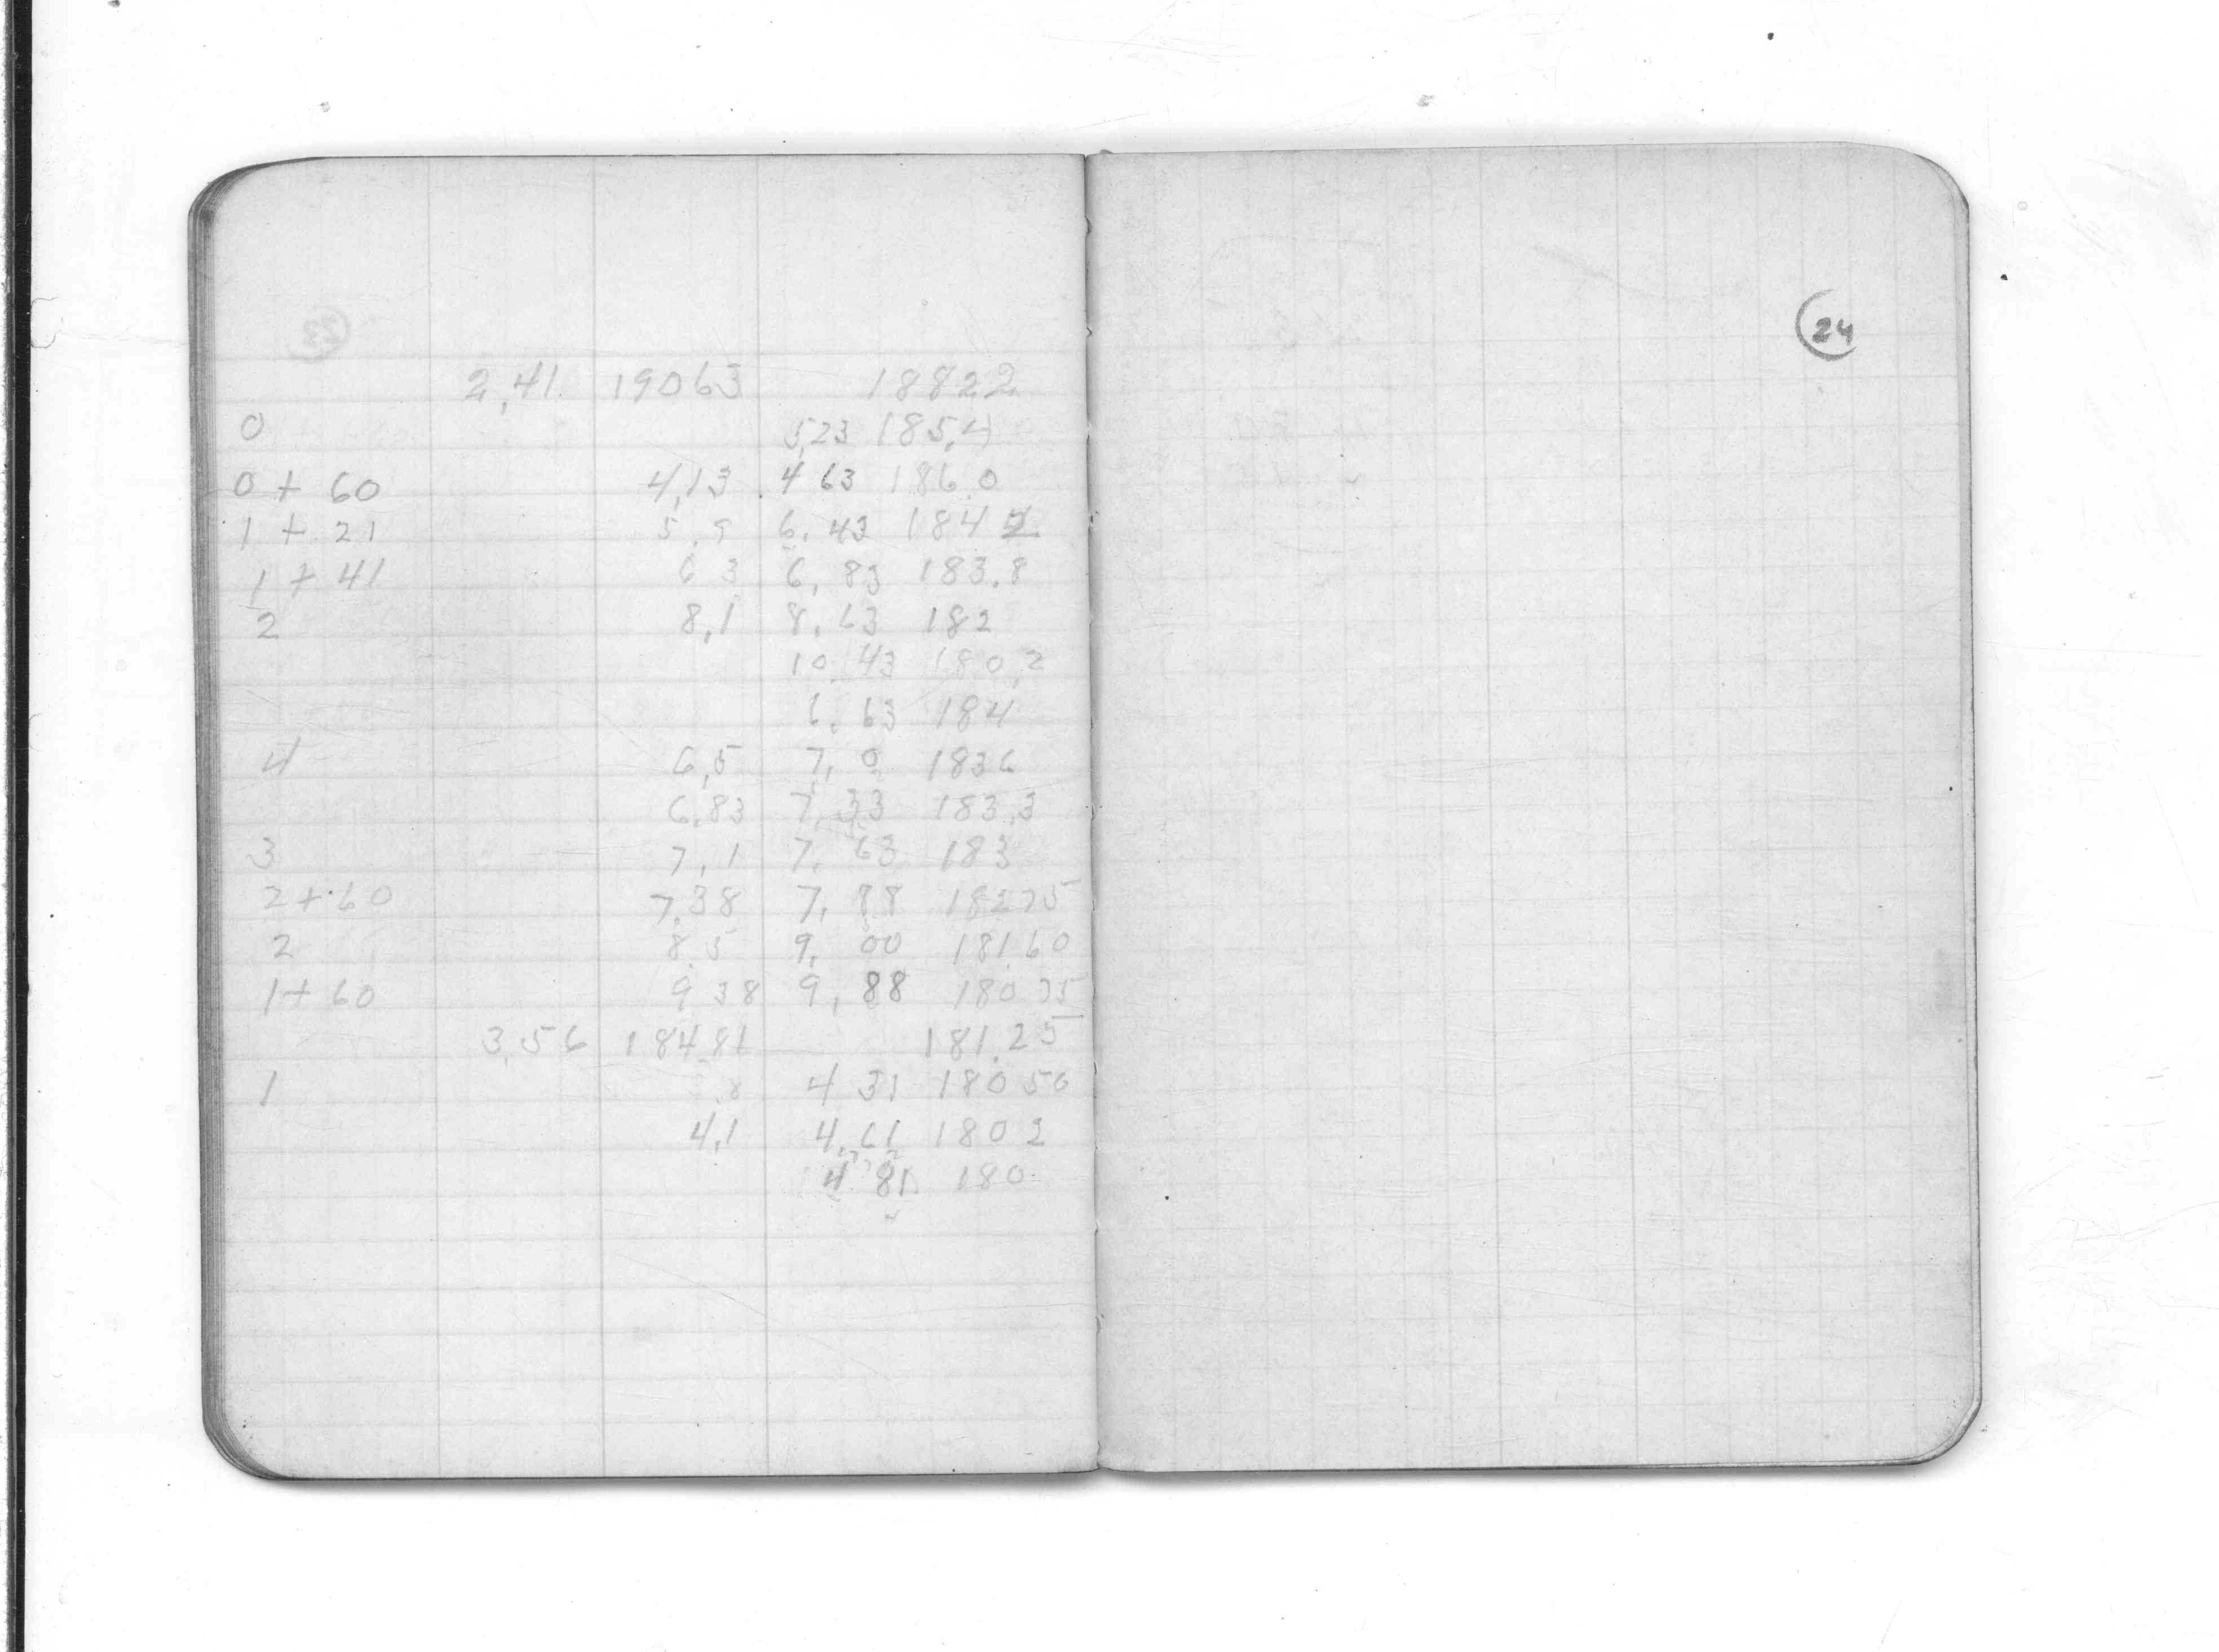 24
2,41 19063 18822
0 5,23 185,4
0 + 60 4,13 4 63 186.0
1 + 21 5.9 6.43 184
1 + 41 6 3 6.83 183.8
2 8,1 8.63 182
10.43 180,2
6.63 184
4 6,5 7,0 1836
6,83 7,33 183,3
3 7,1 7.63 183
2+60 7,38 7,88 18275
2 8.5 9,00 181.60
1+60 9 38 9,88 180 75
3,56 184,81 181.25
1 .8 4 31 180 50
4,1 4,61 180 2
4 81 180